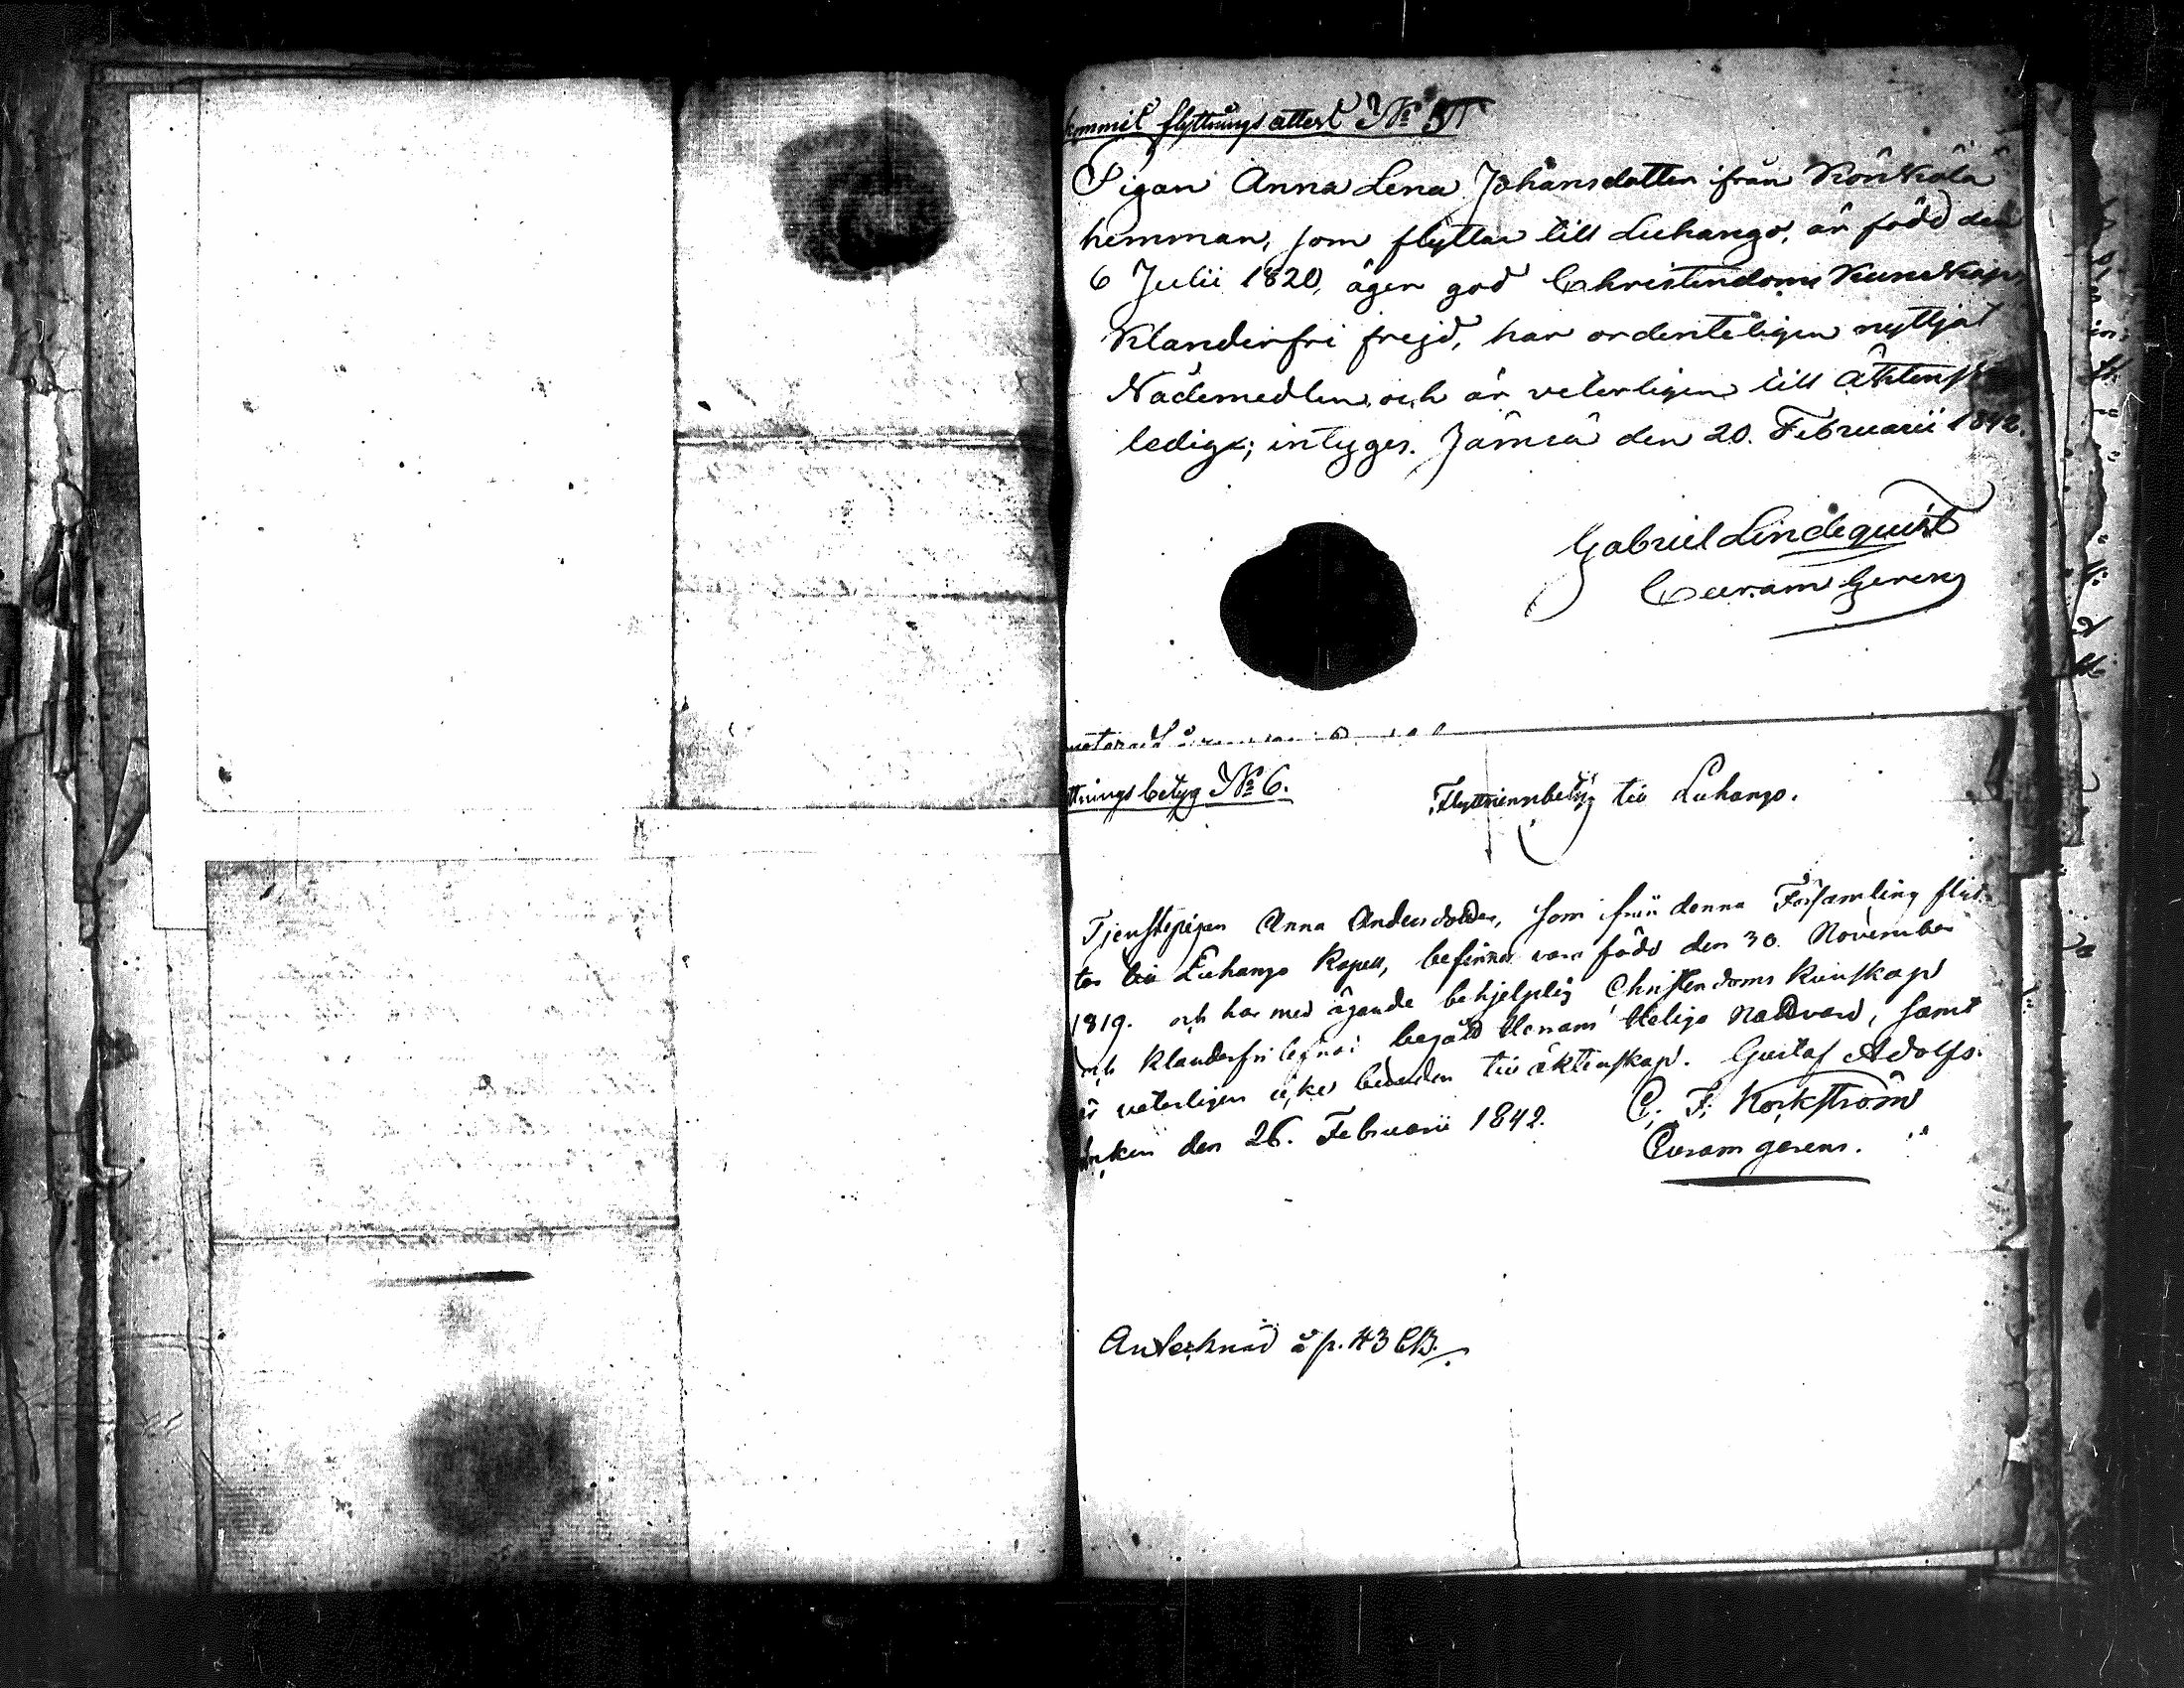 kommit flyttnings attest No 5
Pigan Anna Lena Johansdotter från Könkölä
hemman, som flyttar till Luhango, är född den
6 Julii 1820, äger god Christendoms kunskap,
klanderfri frejd, har ordenteligen nyttjat
Nådemedlen och är veterligen till äktenskap
ledig; intyges. Jämsä den 20. Februarii 1842.
Gabriel Lindequist
Curam Gerens
ttnings betyg No 6.
Flyttningsbetyg till Luhango.
Tjenstepigan Anna Andersdotter, som från denna Församling flyt-
tar till Luhango Kapell, befinnes vara född den 30. November
1819. och har med ägande behjelplig Christendoms kunskap
och klanderfri begått Herrans Heliga Nattvard, samt
är veterligen icke bunden till äktenskap. Gustaf Adolfs
kyrkan den 26. Februarii 1842.
C. F. Korkström
Curam gerens.
Antecknad å p. 43 CB.